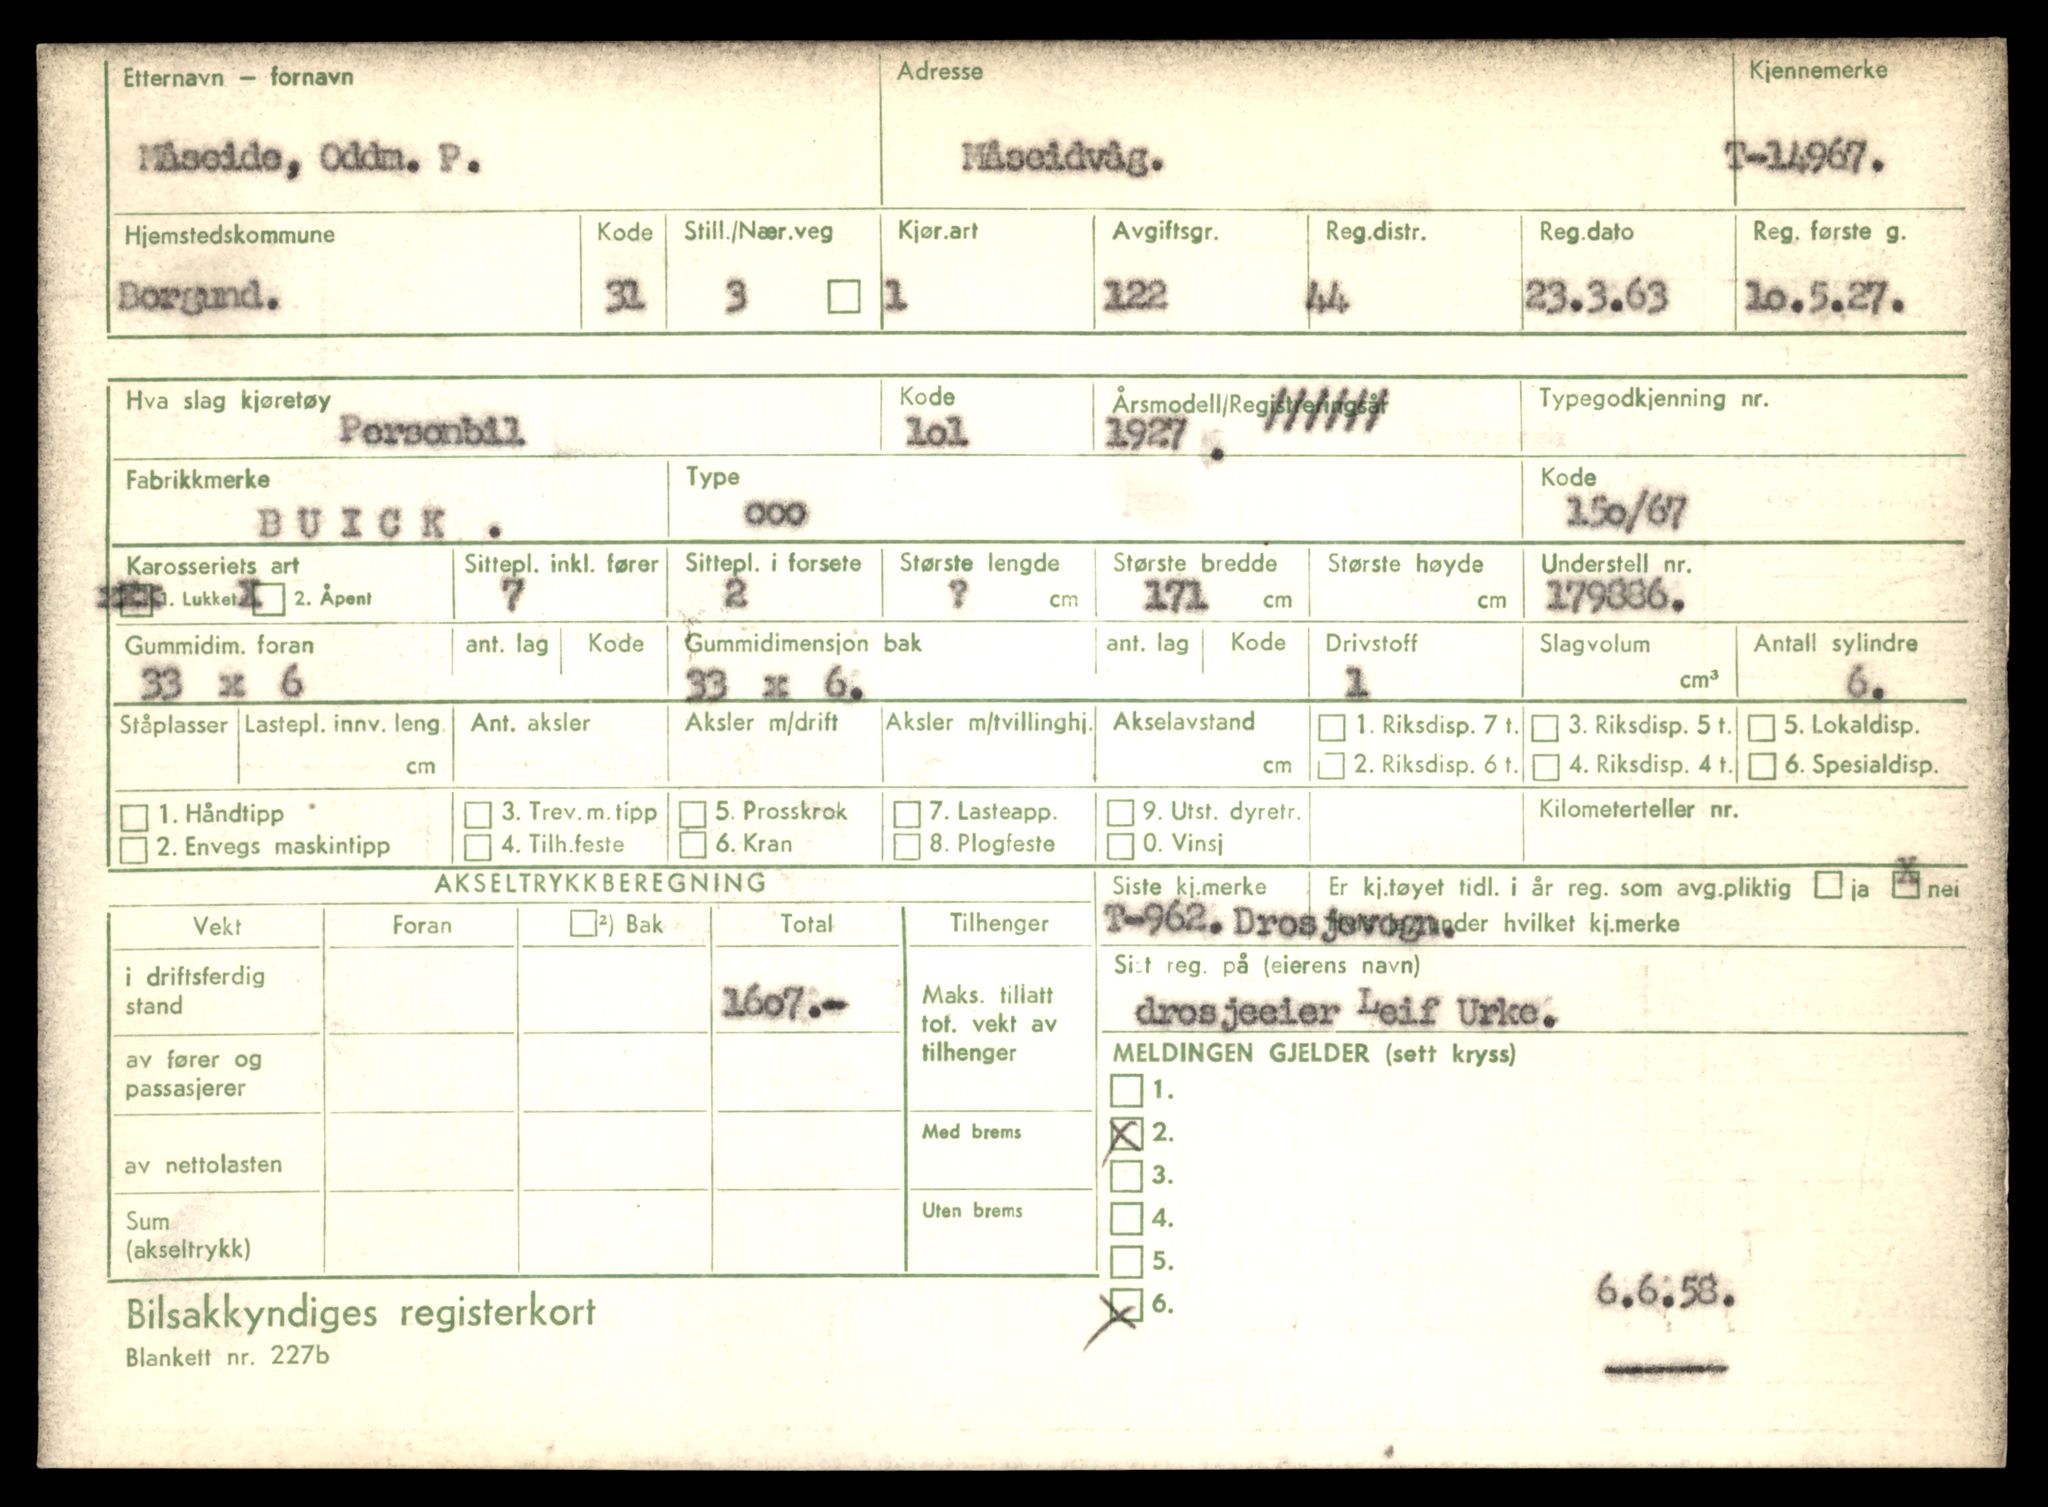 Etternavn – fornavn Adresse Kjennemerke
Måseide, Oddm. P. Måseidvåg. T-14967.
Hjemstedskommune Kode Still./Nær.veg Kjør.art Avgiftsgr. Reg.distr. Reg.dato Reg. første g.
Borgund. 31 3 1 122 44 23.3.63 1o.5.27.
Hva slag kjøretøy Kode Årsmodell/Registreringsår Typegodkjenning nr.
Personbil 1o1 1927 .
Fabrikkmerke Type Kode
BUICK . ooo 15o/67
Karosseriets art Sittepl. inkl. fører Sittepl. i forsete Største lengde Største bredde Største høyde Understell nr.
1. Lukket X 2. Åpent 7 2 ? cm 171 cm cm 179886.
Gummidim. foran ant. lag Kode Gummidimensjon bak ant. lag Kode Drivstoff Slagvolum Antall sylindre
33 x 6 33 x 6. 1 cm³ 6.
Ståplasser Lastepl. innv. leng. Ant. aksler Aksler m/drift Aksler m/tvillinghj. Akselavstand 1. Riksdisp. 7 t. 3. Riksdisp. 5 t. 5. Lokaldisp.
cm cm 2. Riksdisp. 6 t. 4. Riksdisp. 4 t. 6. Spesialdisp.
1. Håndtipp 3. Trev. m. tipp 5. Prosskrok 7. Lasteapp. 9. Utst. dyretr. Kilometerteller nr.
2. Envegs maskintipp 4. Tilh.feste 6. Kran 8. Plogfeste 0. Vinsj
AKSELTRYKKBEREGNING Siste kj.merke Er kj.tøyet tidl. i år reg. som avg.pliktig ja X nei
Vekt Foran ²) Bak Total Tilhenger T-962. Drosjevogn. under hvilket kj.merke
i driftsferdig stand 16o7.- Maks. tillatt tot. vekt av tilhenger
Sist reg. på (eierens navn)
drosjeeier Leif Urke.
av fører og passasjerer
MELDINGEN GJELDER (sett kryss)
1.
X 2.
3.
4.
5.
X 6.
Med brems
av nettolasten
Uten brems
Sum (akseltrykk)
6.6.58.
Bilsakkyndiges registerkort
Blankett nr. 227b